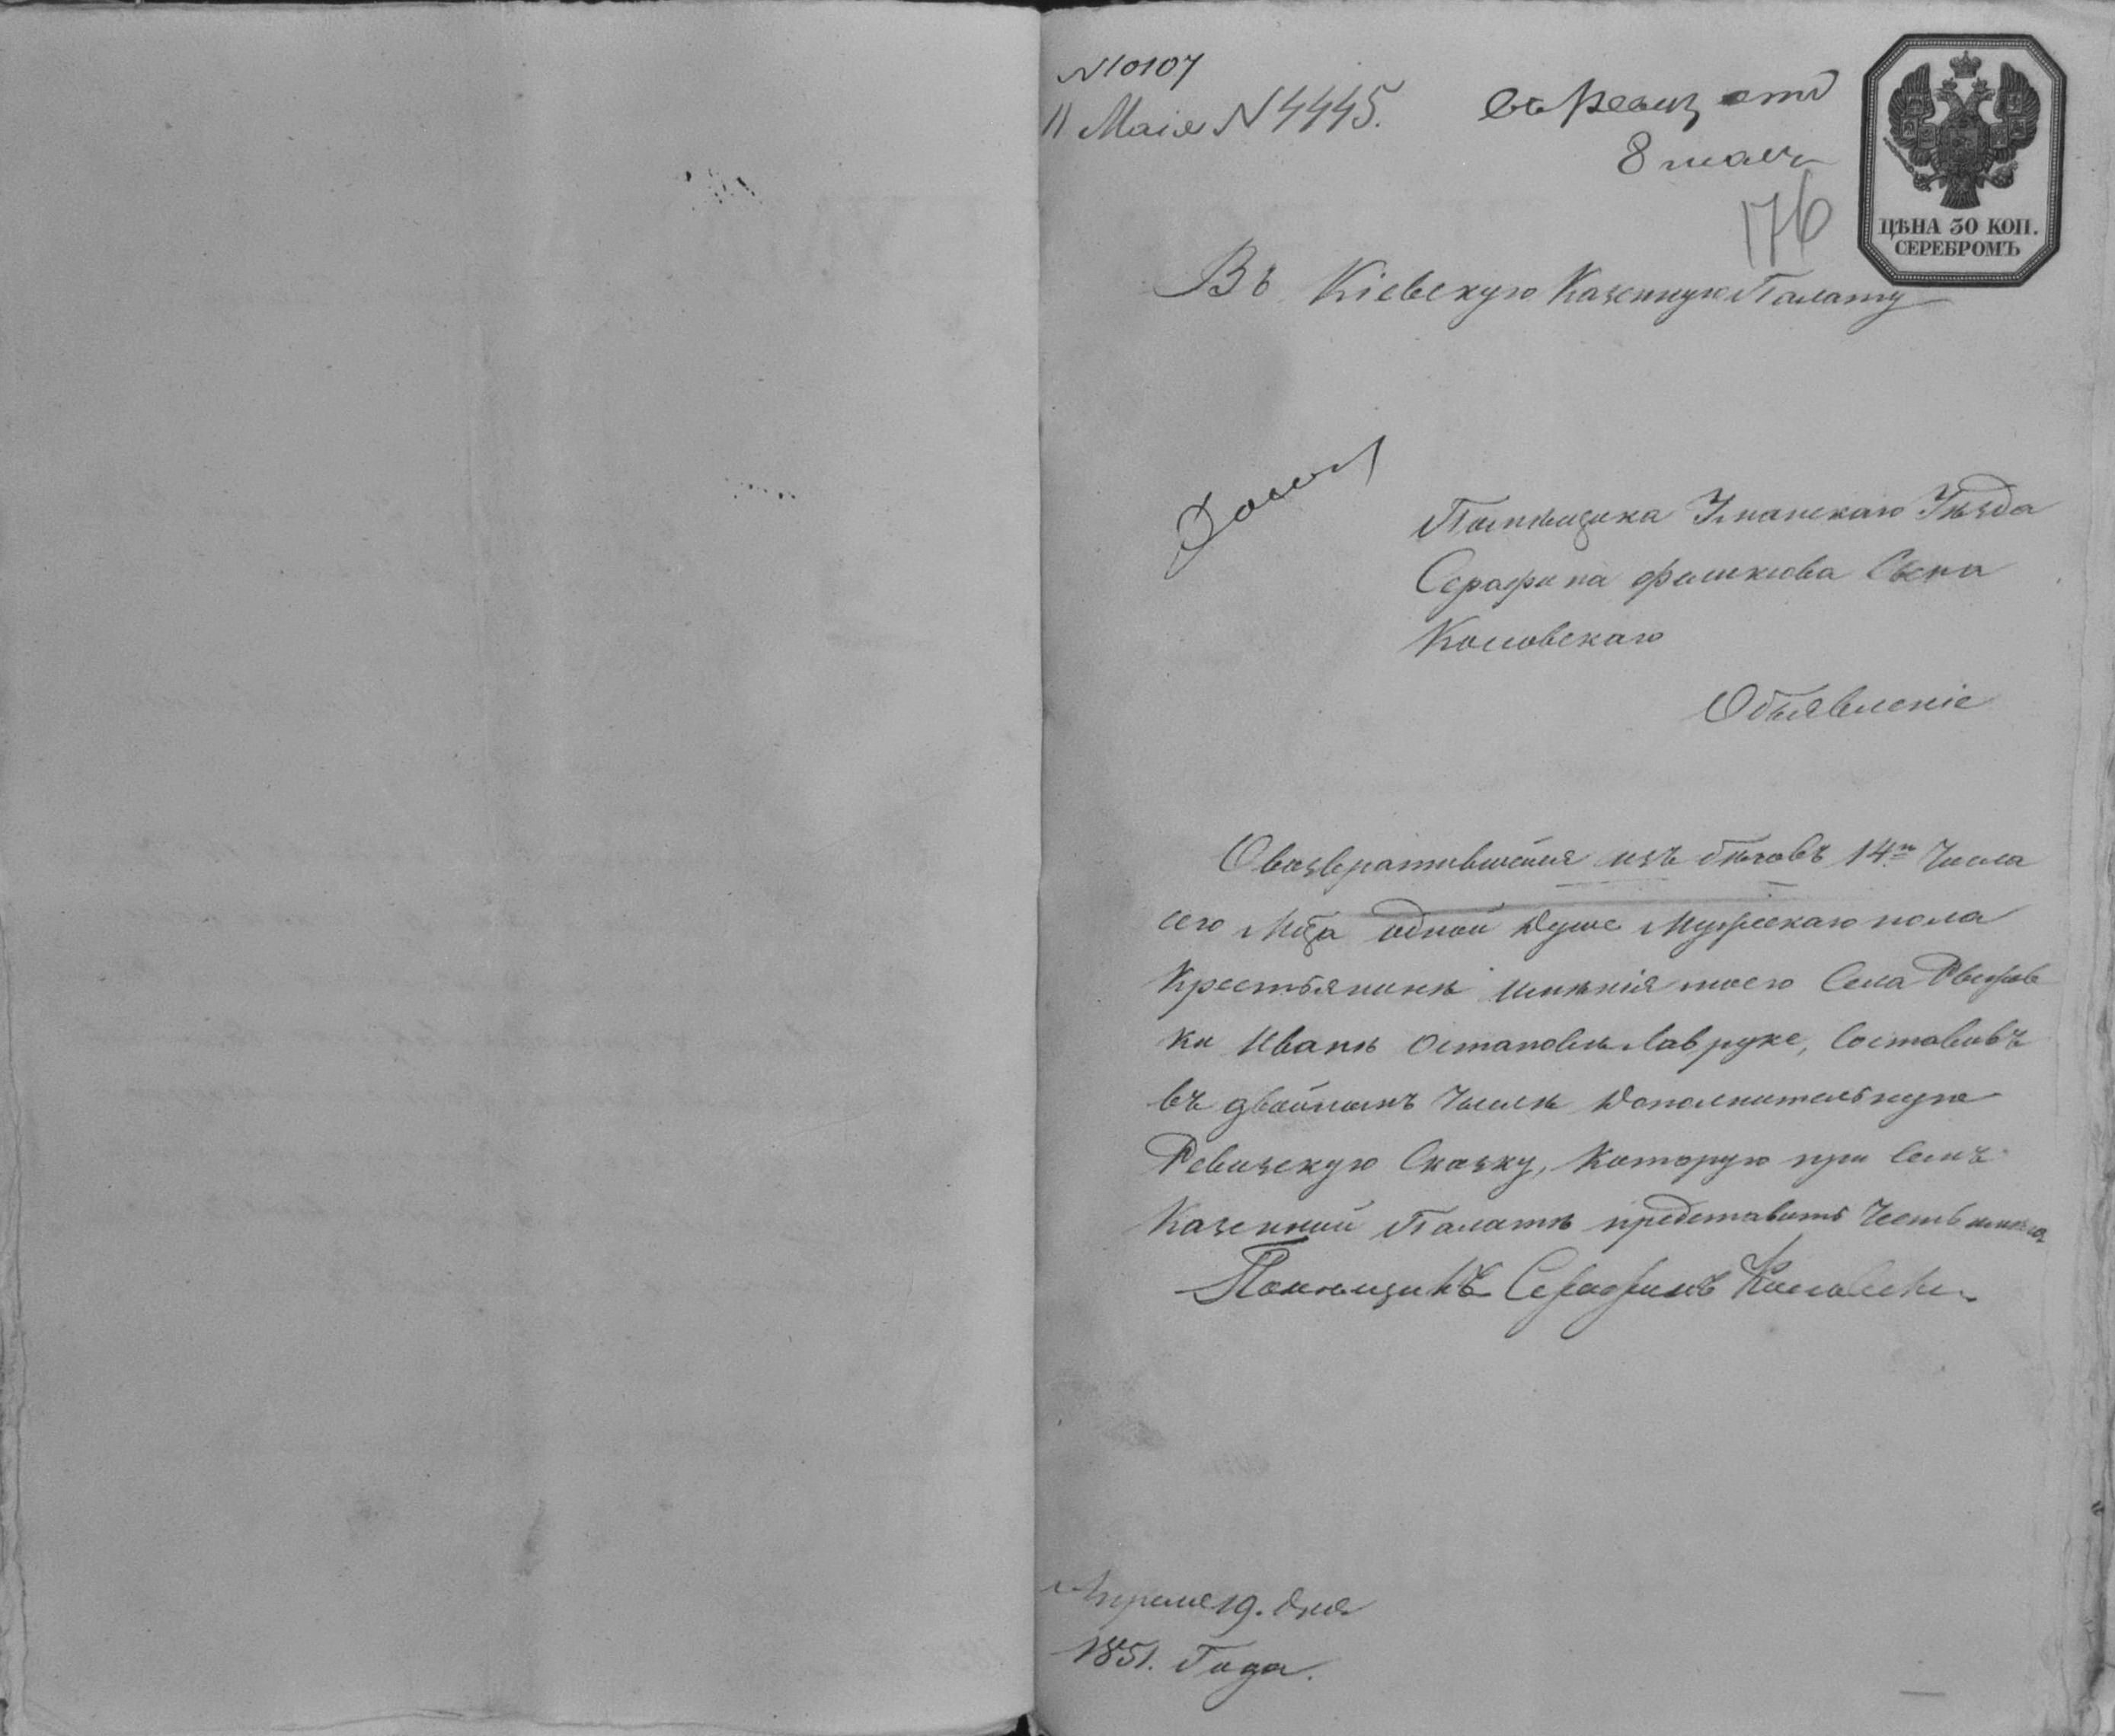 N 10107
11 Маія N 4445.
въ Ревиз отд
8 мая
176
ЦѢНА 30 КОП.
СЕРЕБРОМЪ
Въ Кіевскую Казенную Палату
Помѣщика Уманскаго Уѣзда
Серафима Феликсова Сына
Объявленіе
О возвратившемся изъ бѣговъ 14го Числа
сего Мца одной Душе Мужескаго пола
Крестьянинѣ имѣнія моего Села
ки Иванѣ Остаповѣ Лавруке, Составивъ
въ двойномъ Числѣ Дополнительную
Ревизскую Сказку, Которую при Семъ
Казенной Палатѣ представить Честь имѣю
Помѣщикъ Серафимъ
Апреля 19. дня
1851. Года.